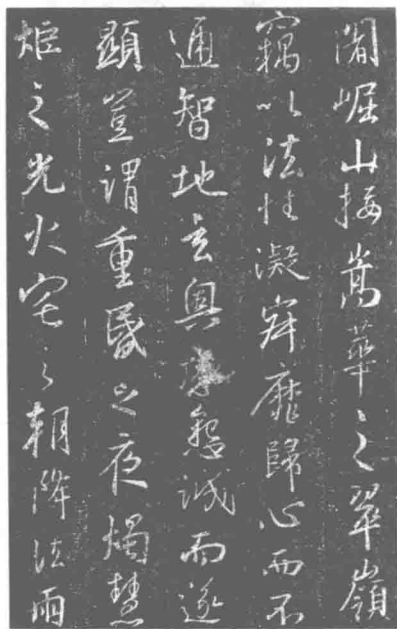 闍崛山接嵩華之翠嶺
竊以法性凝寂靡歸心而不
通智地玄奧懇誠而遂
顯豈謂重昏之夜燭慧
炬之光火宅之朝降法雨